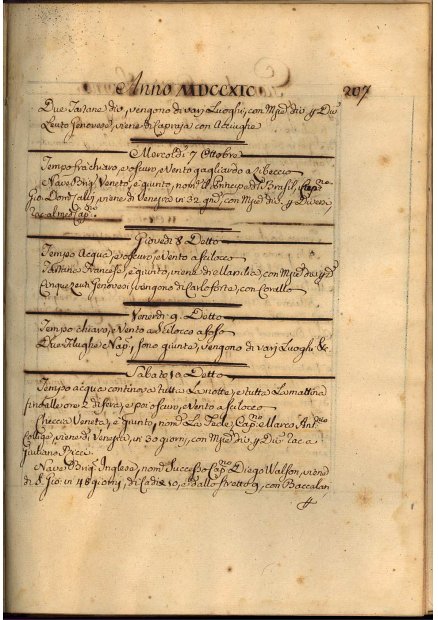 Anno MDCCXIC 207
Due Tartane div, vengono di varj Luoghi, con Mrie div, p Div
Leuto Genovese, viene di Capraja con Acciughe
Mercoldi 7 Ottobre
Tempo frà chiaro, e oscuro, e Vento gagliardo a Libeccio
Nave Brig. Veneto, è giunto, nom.to il Principe di Brasil, Cap.no
Gio Dond, viene di Venezia in 32 gni, con Mrie div, p Diversi,
rac al med Cap.no
Giovedi 8 Detto
Tempo Acqua, e oscuro, e Vento a Sciloceo
Tartana Francese, è giunta, viene di Marsilia, con Mrie div p d
Cinque Leuti Genovesi, vengono di Carloforte, con Corallo
Venerdi 9 Detto
Tempo chiaro, e Vento a Scilocco
Due Filughe Nap., sono giunte, vengono di varj Luoghi &c
Sabato 10 Detto
Tempo acqua continova tutta la notte, e tutta La mattina
fino alle ore 2 di sera, e poi oscuro, e Vento a Sciloceo
Checcia Veneta, è giunta, nom.ta La Fede, Cap.no Marco Ant.nio
viene di Venezia, in 30 giorni, con Mrie div p Div rac a
Giuliano Ricci
Nave Brig. Inglese, nom.to Successo Cap.no Diego Walson, viene
di S. Gio in 48 giorni, di Cadice 10, e dallo stretto 9, con Baccalari